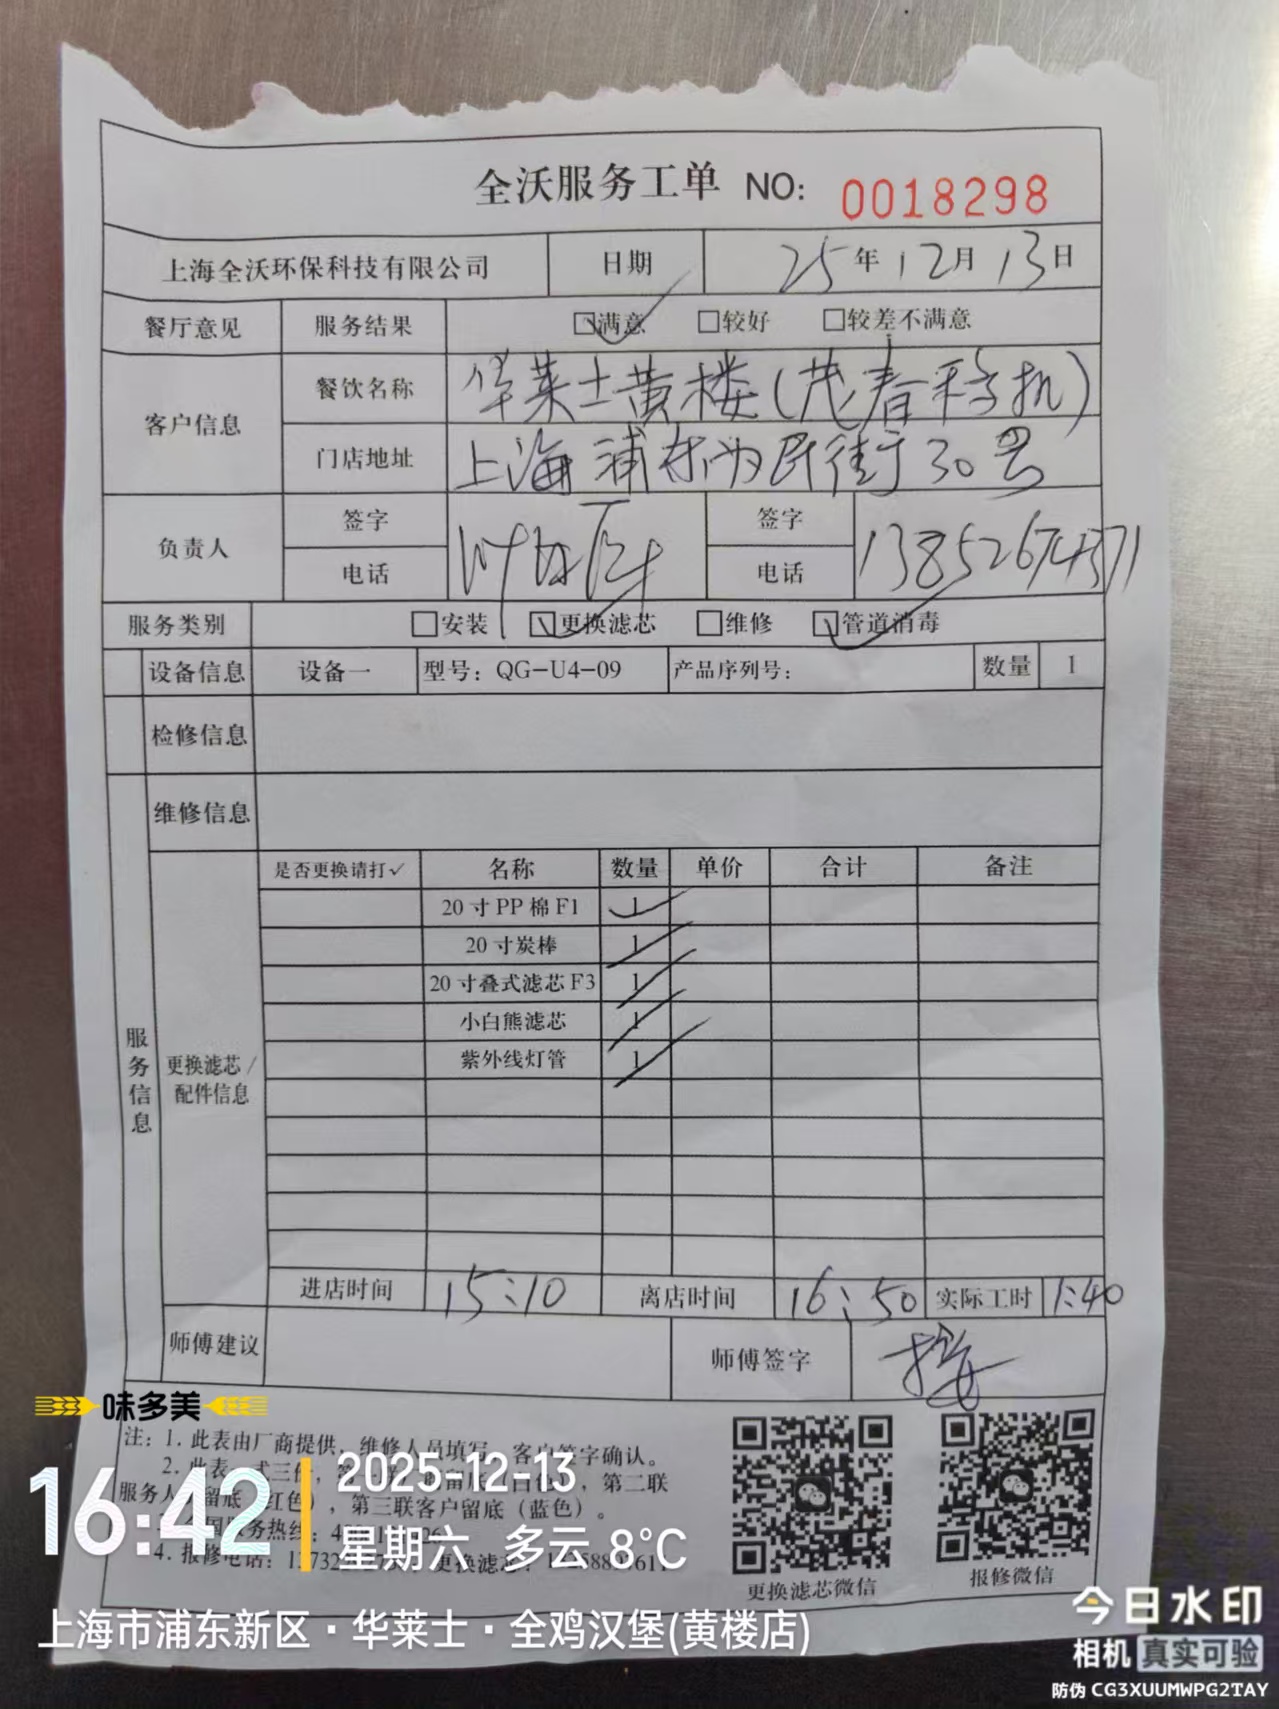 全沃服务工单 NO: 0018298
上海全沃环保科技有限公司 日期 25年12月13日
餐厅意见 服务结果 ☑满意 □较好 □较差不满意
客户信息 餐饮名称 华莱士黄楼(茂春移机)
门店地址 上海浦东为民街30号
负责人 签字 签字
电话 电话 13852674371
服务类别 □安装 ☑更换滤芯 □维修 ☑管道消毒
设备信息 设备一 型号: QG-U4-09 产品序列号: 数量 1
检修信息
维修信息
服务信息
更换滤芯/配件信息
是否更换请打✓ 名称 数量 单价 合计 备注
20寸PP棉F1 1
20寸炭棒 1
20寸叠式滤芯F3 1
小白熊滤芯 1
紫外线灯管 1
进店时间 15:10 离店时间 16:50 实际工时 1:40
师傅建议 师傅签字
味多美
注: 1. 此表由厂商提供, 维修人员填写, 客户签字确认。
2. 此表一式三份, 留底 白色, 第二联
服务人 留底 红色), 第三联客户留底(蓝色)。
国服务热线:
4. 报修电话: 更换滤芯:
更换滤芯微信 报修微信
16:42 2025-12-13
星期六 多云 8°C
上海市浦东新区·华莱士·全鸡汉堡(黄楼店)
今日水印
相机 真实可验
防伪 CG3XUUMWPG2TAY